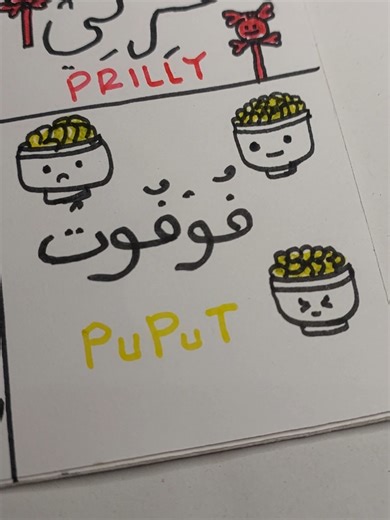 PRILLY
فُوفُوت
PUPUT